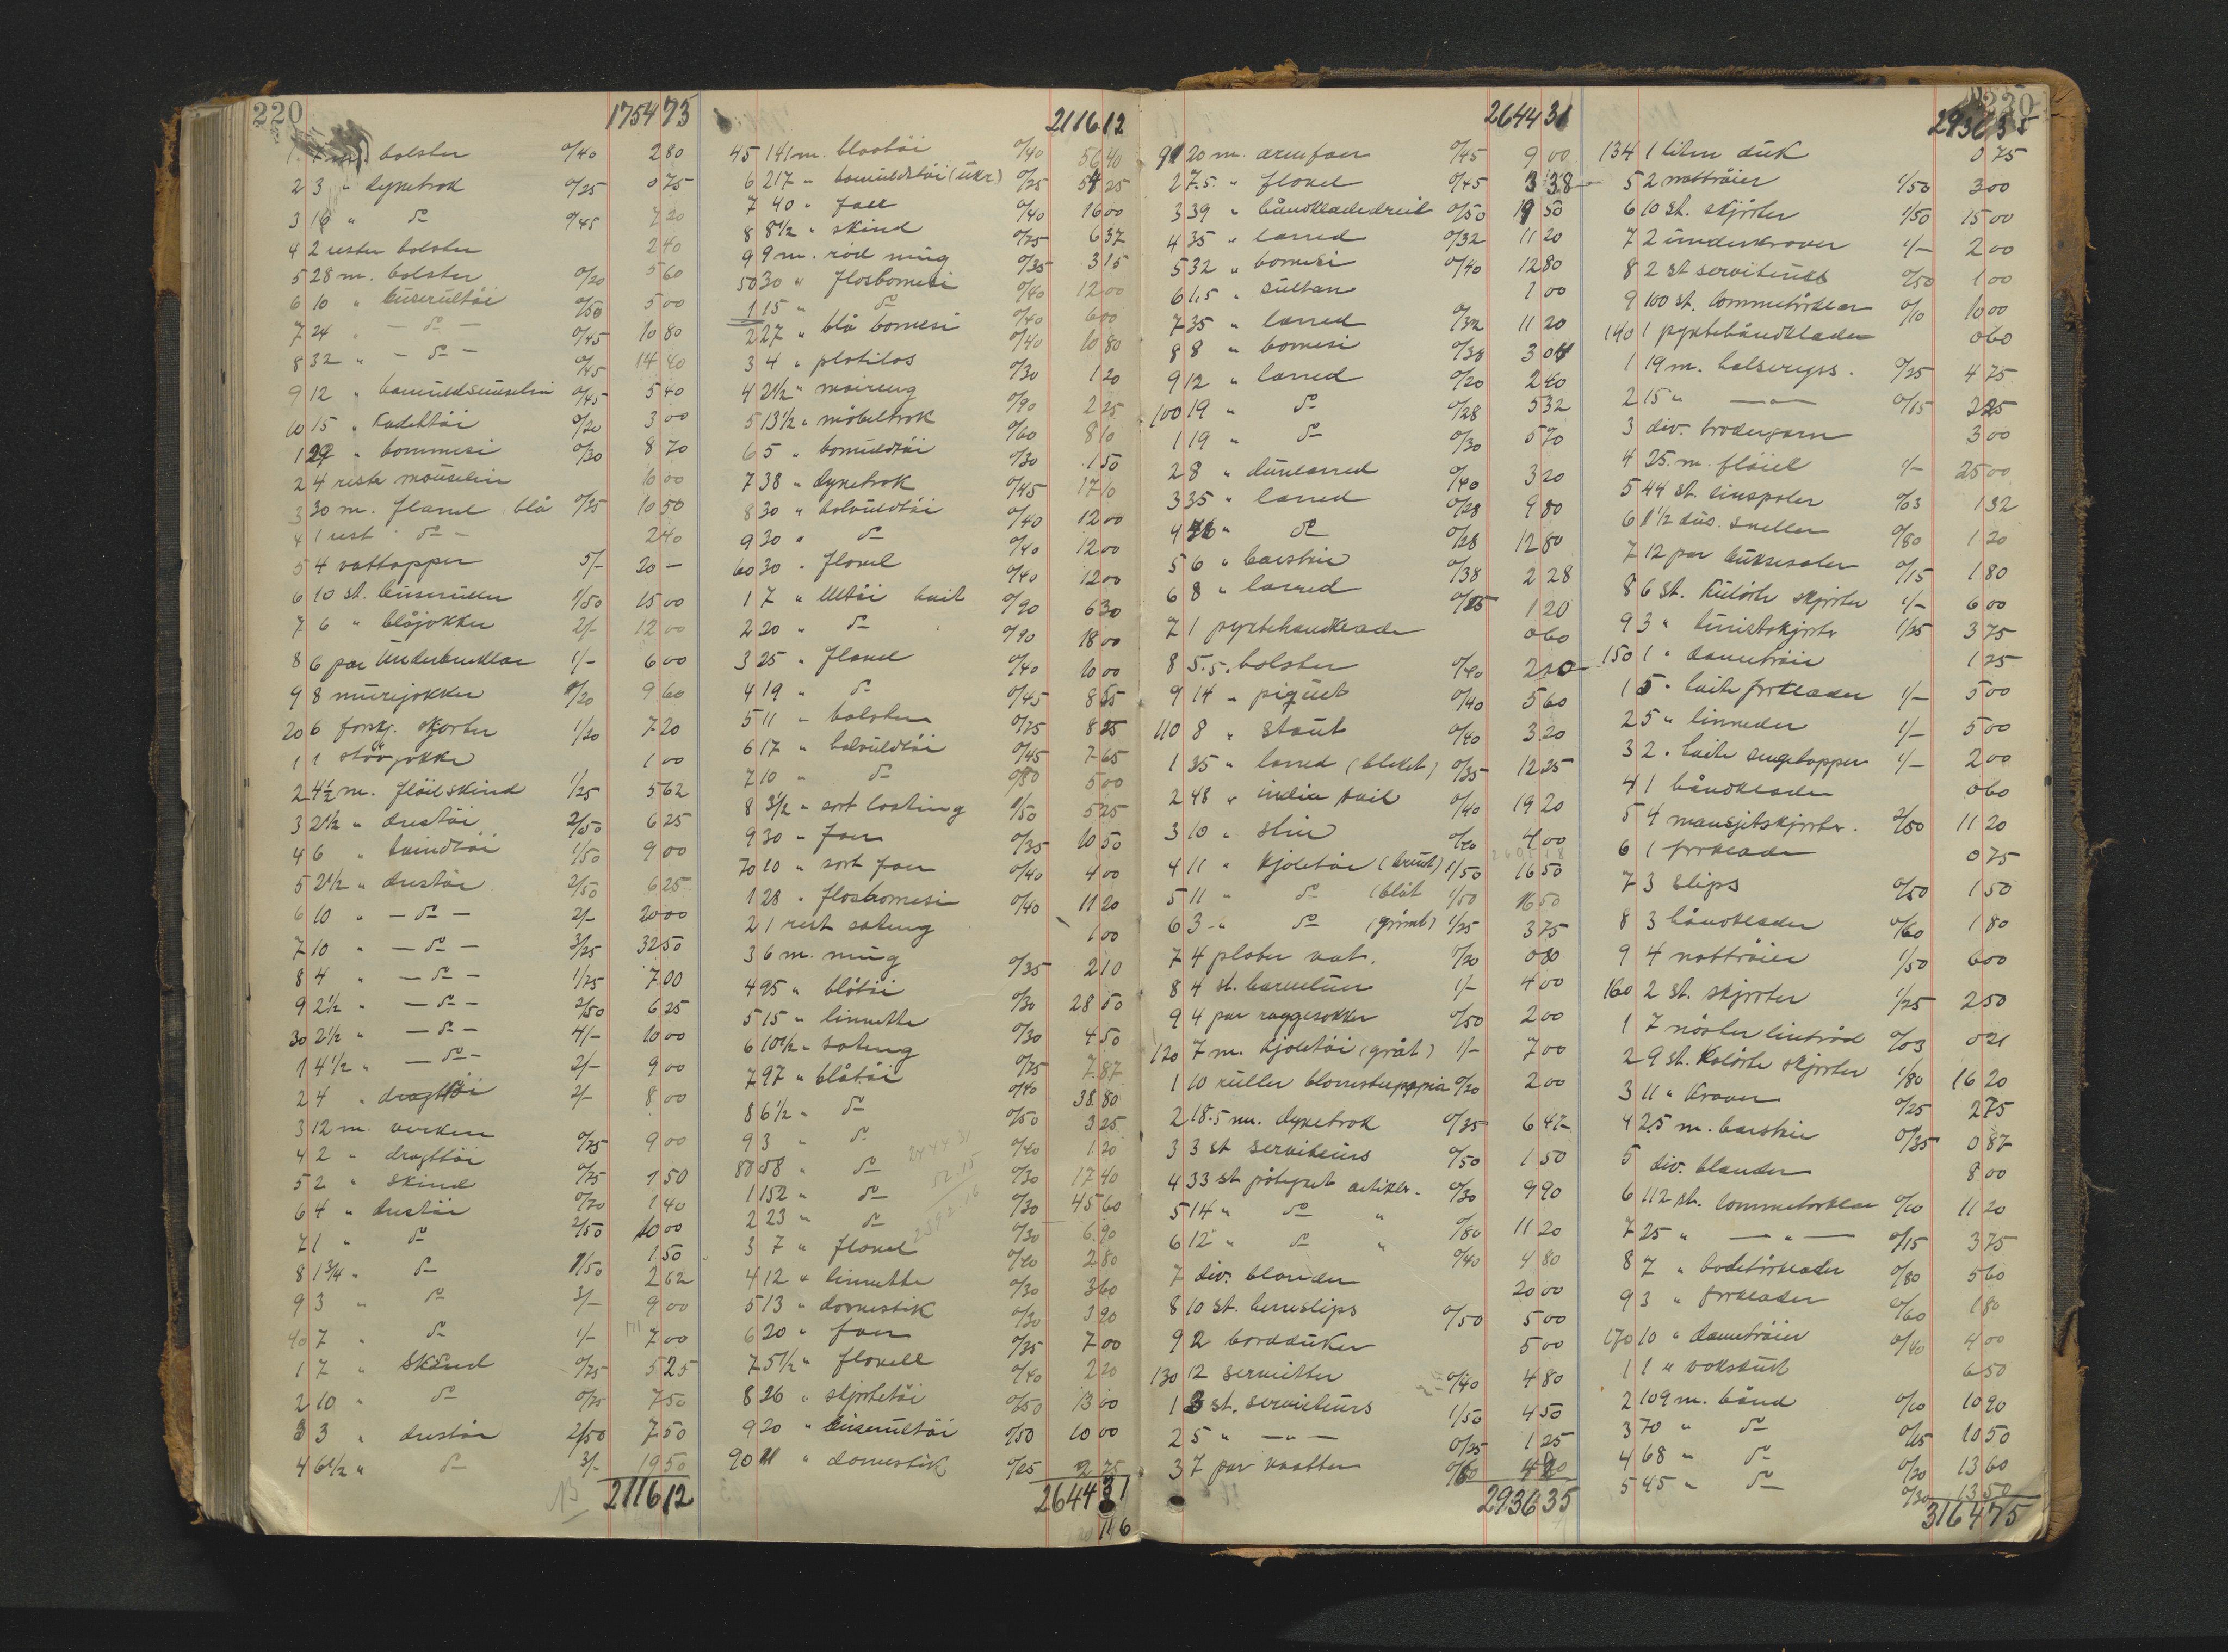 220
1754 73
1 7 m. bolster 0/40 2 80
2 3 " dynetrek 0/25 0 75
3 16 " do 0/45 7 20
4 2 rester bolster 2 40
5 28 m. bolster 0/20 5 60
6 10 " buserultöi 0/50 5 00
7 24 " - do - 0/45 10 80
8 32 " - do - 0/45 14 40
9 12 " 0/45 5 40
10 15 " Kadettöi 0/20 3 00
1 29 " bommesi 0/30 8 70
2 4 rester mouselin 10 00
3 30 m. flanel blå 0/35 10 50
4 1 rest do - 2 40
5 4 vattepper 5/- 20 -
6 10 st. 1/50 15 00
7 6 " blåjakker 2/- 12 00
8 6 par Underbenklær 1/- 6 00
9 8 murejakker 1/20 9 60
20 6 forskj. skjorter 1/20 7 20
1 1 stövjakke 1 00
2 4½ m. flöilskind 1/25 5 62
3 2½ " drestöi 2/50 6 25
4 6 " tvindtöi 1/50 9 00
5 2½ " drestöi 2/50 6 25
6 10 " - do - 2/- 20 00
7 10 " - do - 3/25 32 50
8 4 " - do - 1/75 7 00
9 2½ " - do - 2/50 6 25
30 2½ " - do - 4/- 10 00
1 4½ " - do - 2/- 9 00
2 4 " dragttöi 2/- 8 00
3 12 m. verken 0/75 9 00
4 2 " dragttöi 0/75 1 50
5 2 " skind 0/70 1 40
6 4 " drestöi 2/50 10 00
7 1 " do 1 50
8 1¾ " do 1/50 2 62
9 3 " do 3/- 9 00
40 7 " do 1/- 7 00
1 7 " Skind 0/75 5 25
2 10 " do 0/75 7 50
3 3 " drestöi 2/50 7 50
4 6½ " do 3/- 19 50
2116 12
2116 12
45 141 m. blaatöi 0/40 56 40
6 217 " bomuldstöi (ukr) 0/25 54 25
7 40 " foer 0/40 16 00
8 8½ " skind 0/75 6 37
9 9 m. röd ming 0/35 3 15
50 30 " flosbomesi 0/40 12 00
1 15 " do 0/40 6 00
2 27 " blå bomesi 0/40 10 80
3 4 " platilas 0/30 1 20
4 2½ " moireng 0/90 2 25
5 13½ " möbeltrek 0/60 8 10
6 5 " bomuldtöi 0/30 1 50
7 38 " dynetrek 0/45 17 10
8 30 " halvuldtöi 0/40 12 00
9 30 " do 0/40 12 00
60 30 " flanel 0/40 12 00
1 7 " Ultöi hvit 0/90 6 30
2 20 " do 0/90 18 00
3 25 " flanel 0/40 10 00
4 19 " do 0/45 8 55
5 11 " bolster 0/75 8 25
6 17 " halvuldtöi 0/45 7 65
7 10 " do 0/50 5 00
8 3½ " sort lasting 1/50 5 25
9 30 " foer 0/35 10 50
70 10 " sort foer 0/40 4 00
1 28 " flosbomesi 0/40 11 20
2 1 rest sateng 1 00
3 6 m. ming 0/35 2 10
4 95 " blåtöi 0/30 28 50
5 15 " linnette 0/30 4 50
6 10½ " sateng 0/75 7 87
7 97 " blåtöi 0/40 38 80
8 6½ " do 0/50 3 25
9 3 " do 0/40 1 20
80 58 " do 0/30 17 40
1 152 " do 0/30 45 60
2 23 " do 0/30 6 90
3 7 " flanel 0/40 2 80
4 12 " linnette 0/30 3 60
5 13 " domestik 0/30 3 90
6 20 " foer 0/35 7 00
7 5½ " flanell 0/40 2 20
8 26 " skjortetöi 0/50 13 00
9 20 " buserultöi 0/50 10 00
90 11 " domestik 0/25 2 75
2644 31
116
2644 31
91 20 m. ermfoer 0/45 9 00
2 7.5 " flanel 0/45 3 38
3 39 " håndklædedreil 0/50 19 50
4 35 " lærred 0/32 11 20
5 32 " bomesi 0/40 12 80
6 1.5 " sultan 1 00
7 35 " lærred 0/32 11 20
8 8 " bomesi 0/38 3 04
9 12 " lærred 0/20 2 40
100 19 " do 0/28 5 32
1 19 " do 0/30 5 70
2 8 " dunlærred 0/40 3 20
3 35 " lærred 0/28 9 80
4 " do 0/28 12 80
5 6 " barskin 0/38 2 28
6 8 " lærred 0/15 1 20
7 1 pyntehandklæde 0 60
8 5.5 " bolster 0/40 2 20
9 14 " piquet 0/40 5 60
110 8 " staut 0/40 3 20
1 35 " lærred (bleket) 0/35 12 25
2 48 " india tvil 0/40 19 20
3 10 " strie 0/40 4 00
4 11 " Kjoletöi (brunt) 1/50 16 50
5 11 " do (blåt 1/50 16 50
6 3 " do (grönt) 1/25 3 75
7 4 plater vat. 0/20 0 80
8 4 st. barnetöier 1/- 4 00
9 4 par raggesokker 0/50 2 00
120 7 m. Kjoletöi (gråt) 1/- 7 00
1 10 ruller blomsterpapir 0/20 2 00
2 18.5 m. dynetrek 0/35 6 47
3 3 st serviteurs 0/50 1 50
4 33 st påtegnet artikler 0/30 9 90
5 14 " do " 0/80 11 20
6 12 " do " 0/40 4 80
7 div. blonder 20 00
8 10 st. herreslips 0/50 5 00
9 2 bordduker 5 00
130 12 servietter 0/40 4 80
1 3 st. serviteurs 1/50 4 50
2 5 " - " - 0/25 1 25
3 7 par vaatter 0/60 4 20
2936 35
220
2936 35
134 1 liten duk 0 75
5 2 nattröier 1/50 3 00
6 10 st. skjörter 1/50 15 00
7 2 underkraver 1/- 2 00
8 2 st serviteurs 0/50 1 00
9 100 st. lommetörklær 0/10 10 00
140 1 pyntehåndklæde 0 60
1 19 m. halseryss. 0/25 4 75
2 15 " - " - 0/15 2 25
3 div. brodergarn 3 00
4 25. m. flöiel 1/- 25 00
5 44 st. linspoler 0/03 1 32
6 1½ dus. sneller 0/80 1 20
7 12 par buksesæler 0/15 1 80
8 6 st. Kulörte skjorter 1/- 6 00
9 3 " turistskjorter 1/25 3 75
150 1 " dametröie 1 25
1 5 " hvite forklæder 1/- 5 00
2 5 " linneder 1/- 5 00
3 2 " hvite sengetepper 1/- 2 00
4 1 håndklæde 0 60
5 4 mansjetskjorter. 2/80 11 20
6 1 forklæde 0 75
7 3 slips 0/50 1 50
8 3 håndklæder 0/60 1 80
9 4 nattröier 1/50 6 00
160 2 st. skjorter 1/25 2 50
1 7 nöster lintråd 0/03 0 21
2 9 st. Kulörte skjorter 1/80 16 20
3 11 " Kraver 0/25 2 75
4 2.5 m. barskin 0/35 0 87
5 div. blonder 8 00
6 112 st. lommetörklær 0/10 11 20
7 25 " - " - 0/15 3 75
8 7 " badetörklæder 0/80 5 60
9 3 " forklæder 0/60 1 80
170 10 " dametröier 0/40 4 00
1 1 " voksduk 6 50
2 109 m. bånd 0/10 10 90
3 70 " do 0/15 10 50
4 68 " do 0/20 13 60
5 45 " do 0/30 13 50
3164 75